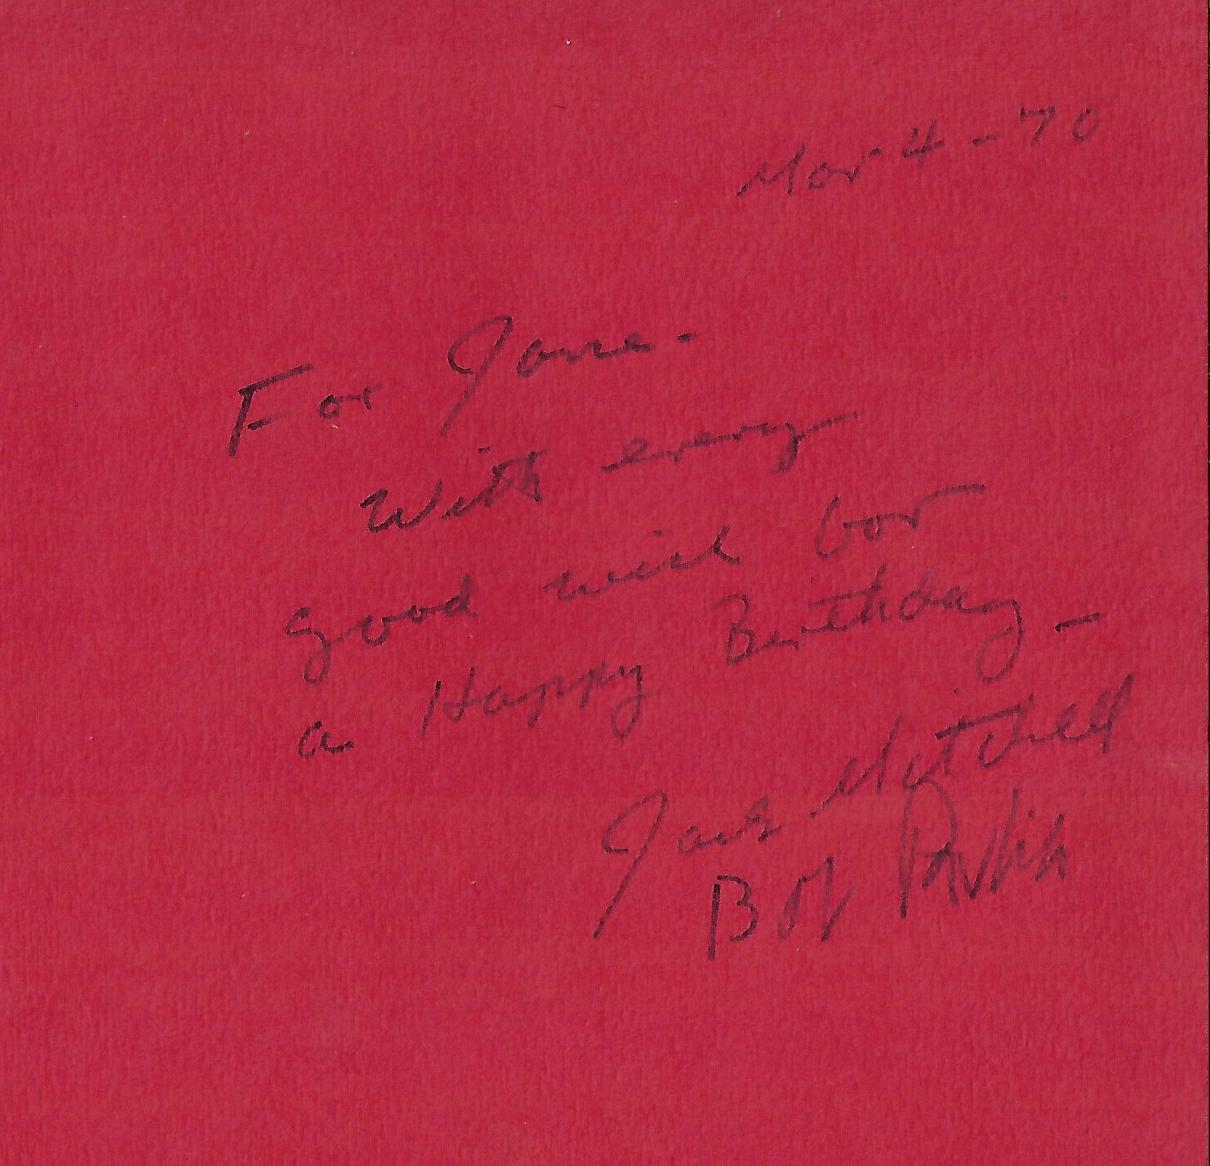 Mar 4 - 70
For Jane -
With every
good wish for
a Happy Birthday -
Jack Mitchell
Bob